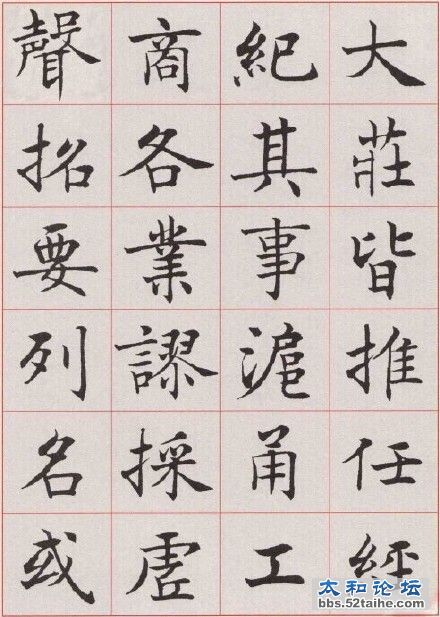 大莊皆推任經
紀其事滬甬工
商各業謬採虛
聲招要列名或
太和论坛
bbs.52taihe.com